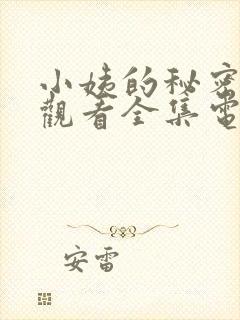 小姨的秘密
觀看全集電
安雷